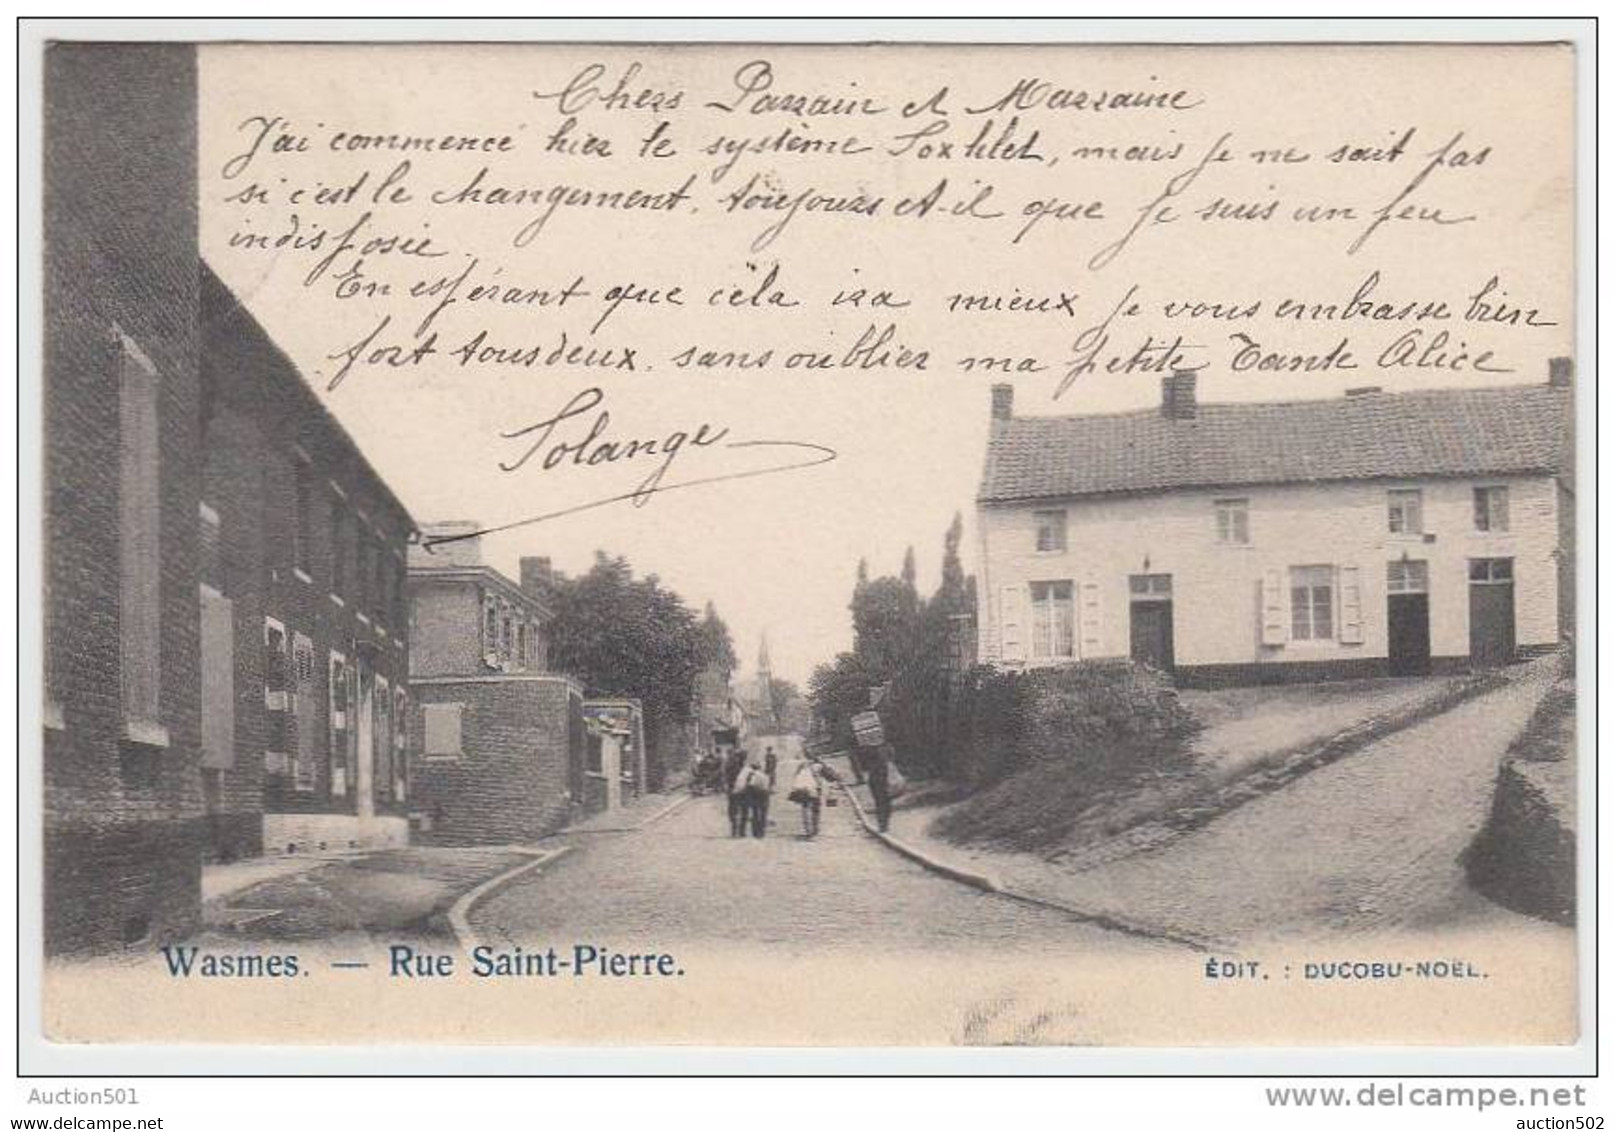 Chers Parrain et Marraine
J'ai commencé hier le système Soxhlet, mais je ne sait pas
si c'est le changement, toujours et-il que je suis un peu
indisposée.
En espérant que cela ira mieux je vous embrasse bien
fort tous deux, sans oublier ma petite Tante Alice
Solange
Wasmes. — Rue Saint-Pierre.
ÉDIT. : DUCOBU-NOËL.
Auction501
www.delcampe.net
www.delcampe.net
auction502